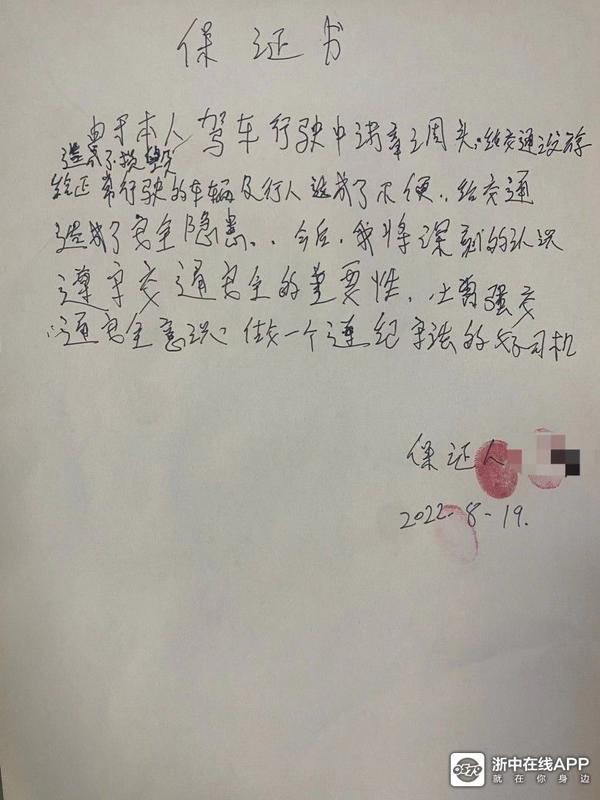 保证书
由于本人驾车行驶中违章调头,给交通设施
造成了损毁
给正常行驶的车辆及行人造成了不便,给交通
造成了安全隐患,今后,我将深刻的认识
遵守交通安全的重要性,增强交
通安全意识 做一个遵纪守法的好司机
保证人
2022.8-19.
浙中在线APP
就在你身边